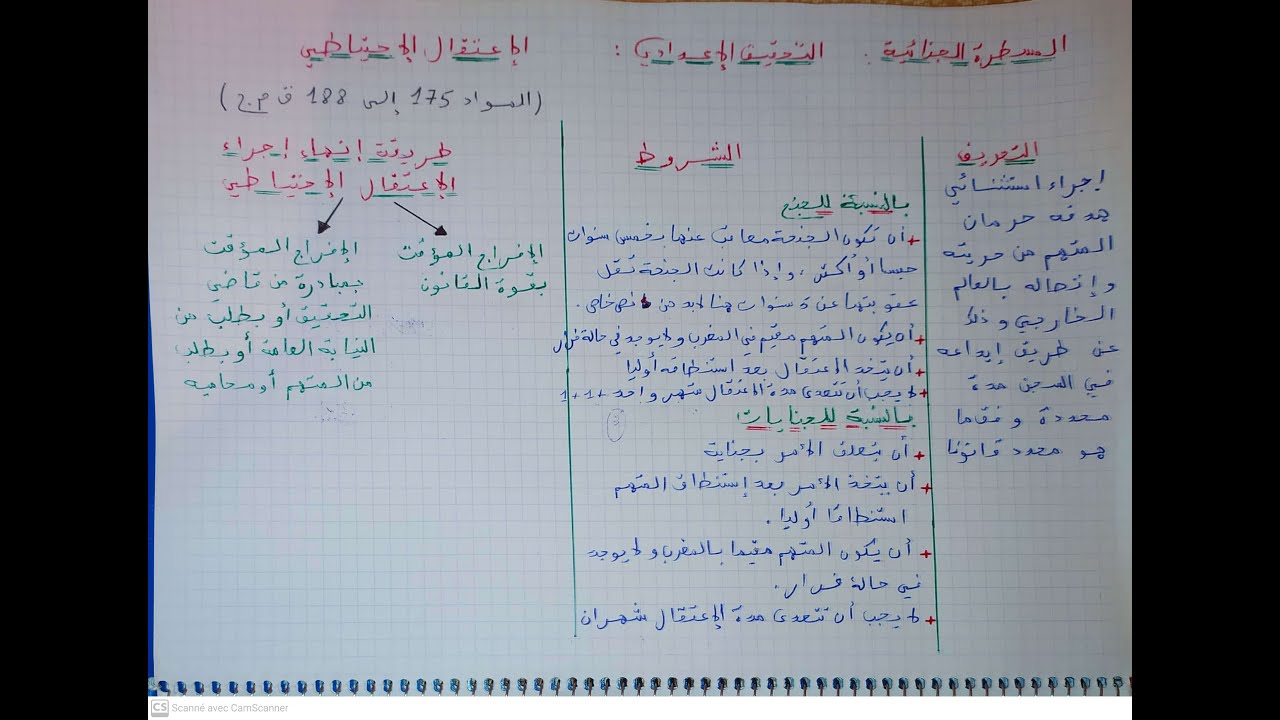 المسطرة الجنائية. التحقيق الإعدادي: الإعتقال الإحتياطي
(المواد 175 إلى 188 ق م.ج)
التعريف
إجراء استثنائي
هدفه حرمان
المتهم من حريته
وإتصاله بالعالم
الخارجي وذلك
عن طريق إيداعه
في السجن مدة
محددة وفقما
هو محدد قانونا
الشروط
بالنسبة للجنح
+ أن تكون الجنحة معاقب عنها بخمس سنوات
حبسا أو أكثر، وإذا كانت الجنحة تقل
عقوبتها عن 5 سنوات هنا لابد من نص خاص.
+ أن يكون المتهم مقيم في المغرب ولا يوجد في حالة فرار
+ أن يتخذ الاعتقال بعد استنطاقه أوليا
+ لا يجب أن تتعدى مدة الاعتقال شهر واحد +1+1
بالنسبة للجنايات:
+ أن يتعلق الأمر بجناية
+ أن يتخذ الأمر بعد إستنطاق المتهم
استنطاقا أوليا.
+ أن يكون المتهم مقيما بالمغرب ولا يوجد
في حالة فرار.
+ لا يجب أن تتعدى مدة الإعتقال شهران
طريقة إنهاء إجراء
الإعتقال الإحتياطي
الإفراج المؤقت
بقوة القانون
الإفراج المؤقت
بمبادرة من قاضي
التحقيق أو بطلب من
النيابة العامة أو بطلب
من المتهم أو محاميه
CS Scanné avec CamScanner